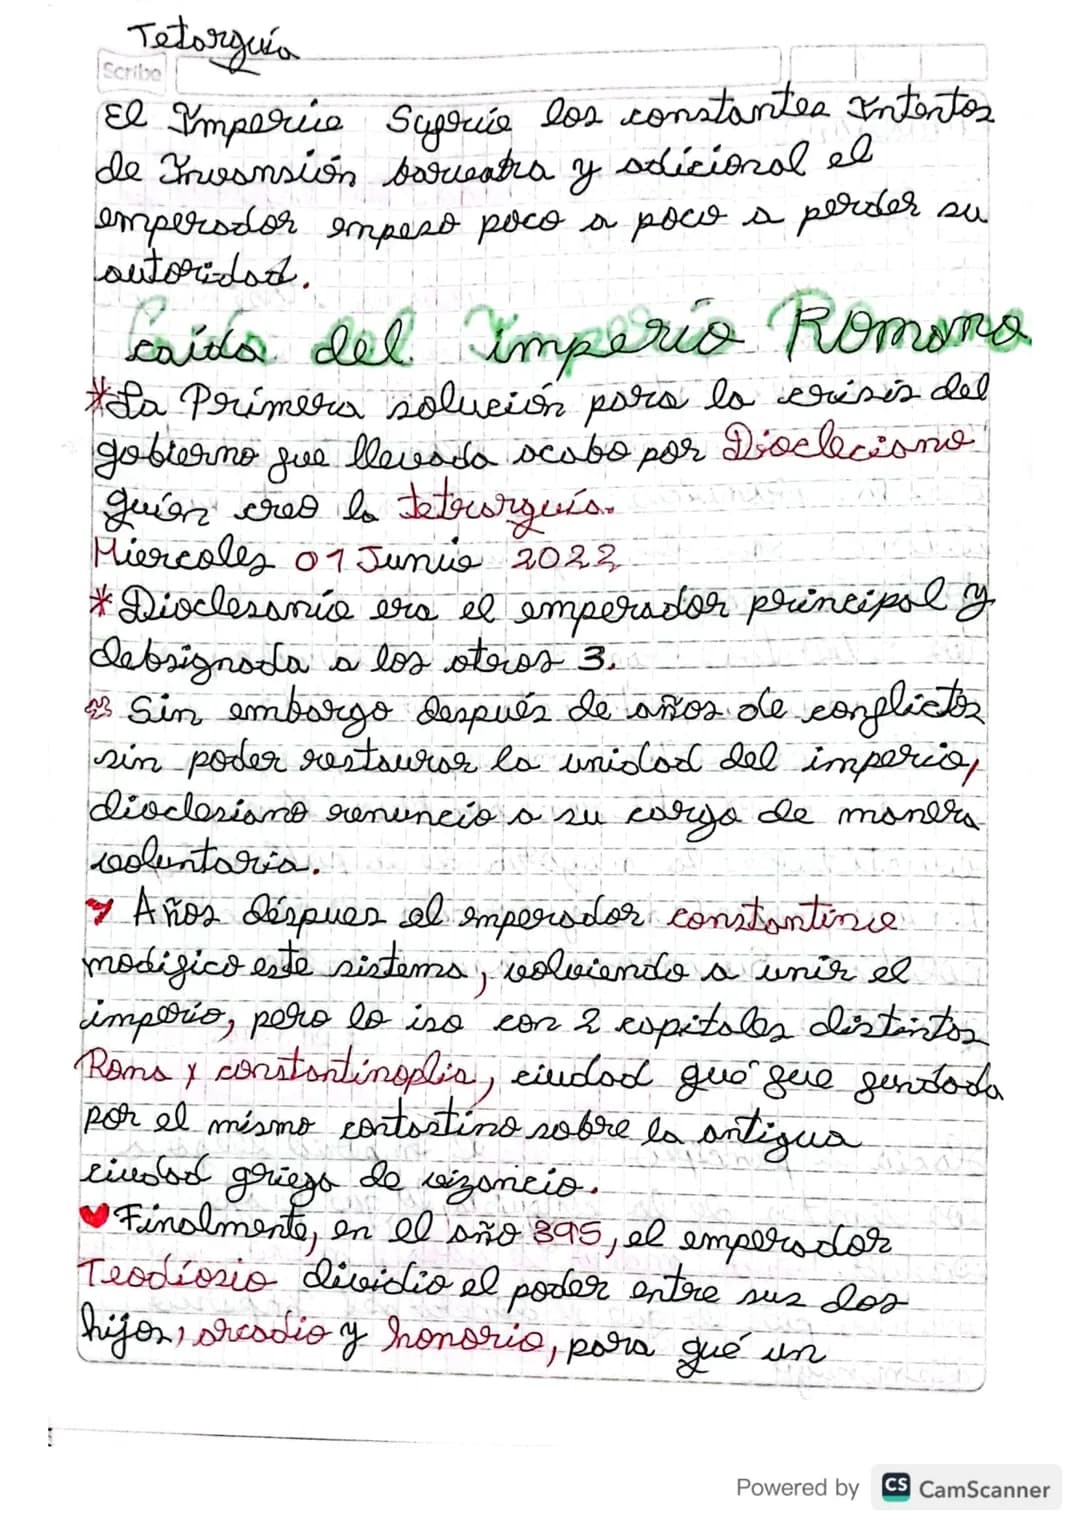 Tetorguía
Scribe
El Imperio Sugría los constantes Intentos
de Invansión y adicional el
emperador empeso poco a poco a perder su
autoridad.
caída del imperio Romano
*La Primera solución para la crisis del
gobierno fue llevada acabo por Diocleciano
quién creo la tetrarquía.
Miercoles 01 Junio 2022
*Dioclesano era el emperador principal y
debsignada a los otros 3.
Sin embargo después de años de conflictos
sin poder restaurar la unidad del imperio,
dioclesiano renuncio a su cargo de manera
voluntaria.
Años déspues el emperador constantino
modifico este sistema, volviendo a unir el
imperio, pero lo iso con 2 capitales distintos
Roma y constantinoplia, ciudad qué fue fundada
por el mismo contastino sobre la antigua
ciudad griega de vizancio.
Finalmente, en el año 395, el emperador
Teodiosio dividio el poder entre sus dos
hijos, arcadio y honorio, para qué un
Powered by CS CamScanner